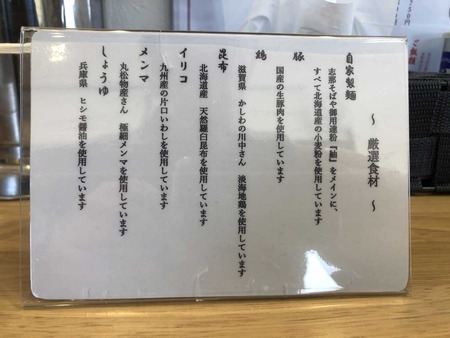 ～ 厳選食材 ～
自家製麺
志那そばや御用達粉『紬』をメインに、
すべて北海道産の小麦粉を使用しています
豚
国産の生豚肉を使用しています
鶏
滋賀県 かしわの川中さん 淡海地鶏を使用しています
昆布
北海道産 天然羅臼昆布を使用しています
イリコ
九州産の片口いわしを使用しています
メンマ
丸松物産さん 極細メンマを使用しています
しょうゆ
兵庫県 ヒシモ醤油を使用しています